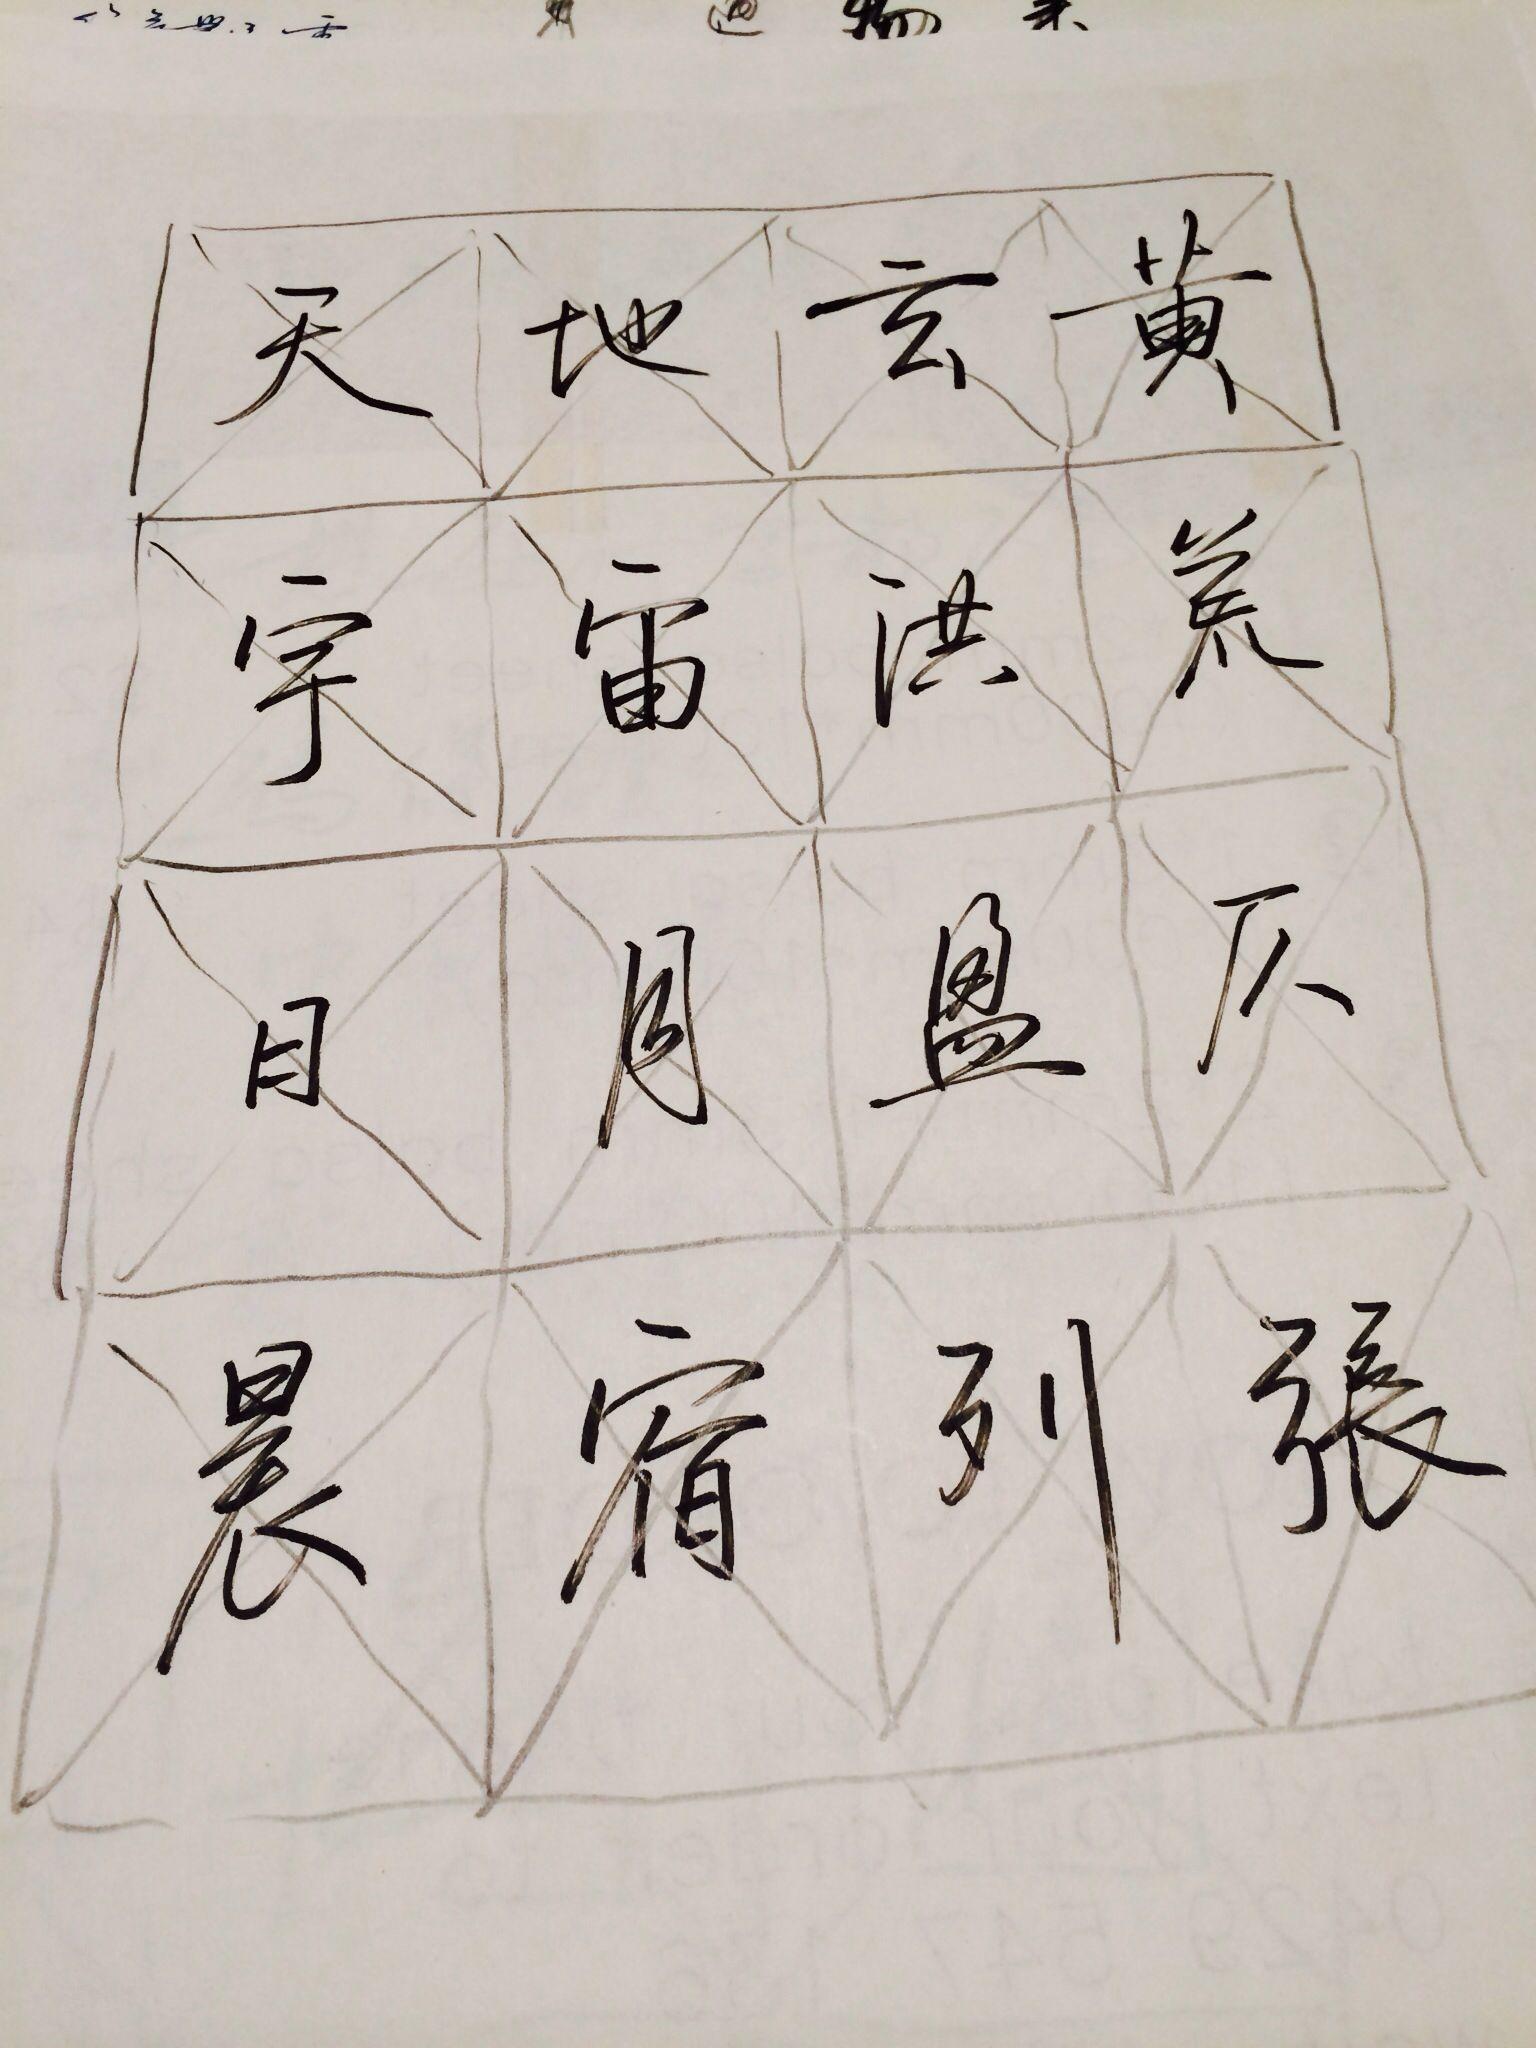 天地玄黄
宇宙洪荒
日月盈仄
晨宿列張